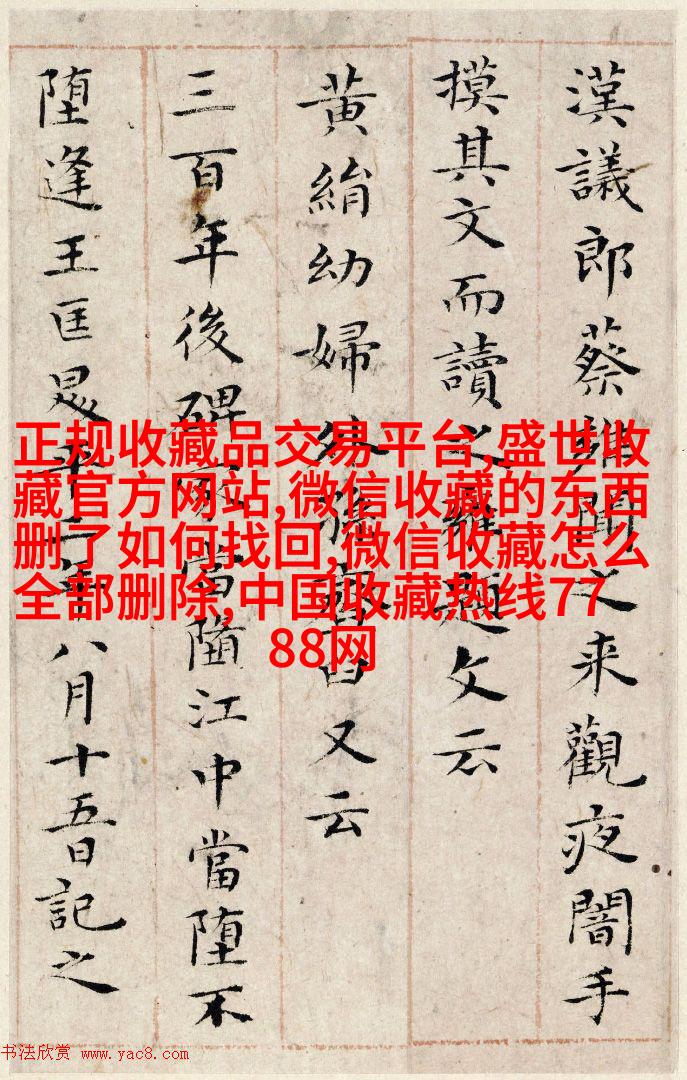 漢議郎蔡雝聞之来觀夜闇手
摸其文而讀之雝題文云
黃絹幼婦外孫韲臼又云
三百年後碑冢當墮江中當墮不
墮逢王匡昇平二年八月十五日記之
正规收藏品交易平台,盛世收
藏官方网站,微信收藏的东西
删了如何找回,微信收藏怎么
全部删除,中国收藏热线77
88网
书法欣赏 www.yac8.com